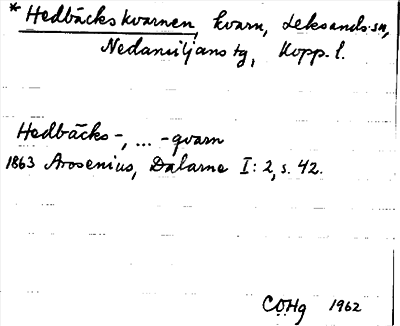 * Hedbäckskvarnen, kvarn, Leksands sn,
Nedansiljans tg, Kopp. l.
Hedbäcks-, ... -qvarn
1863 Arosenius, Dalarne I: 2, s. 42.
COHg 1962